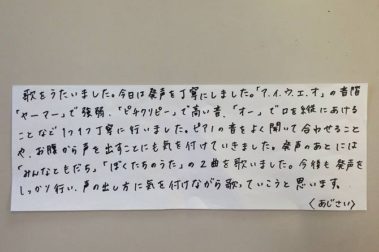 歌をうたいました。今日は発声を丁寧にしました。「ア.イ.ウ.エ.オ」の音階
「ヤーマー」で強弱、「ピチクリピー」で高い音、「オー」で口を縦にあける
ことなど1つ1つ丁寧に行いました。ピアノの音をよく聞いて合わせること
や、お腹から声を出すことにも気を付けていきました。発声のあとには
「みんなともだち」「ぼくたちのうた」の2曲を歌いました。今後も発声を
しっかり行い、声の出し方に気を付けながら歌っていこうと思います。
〈あじさい〉